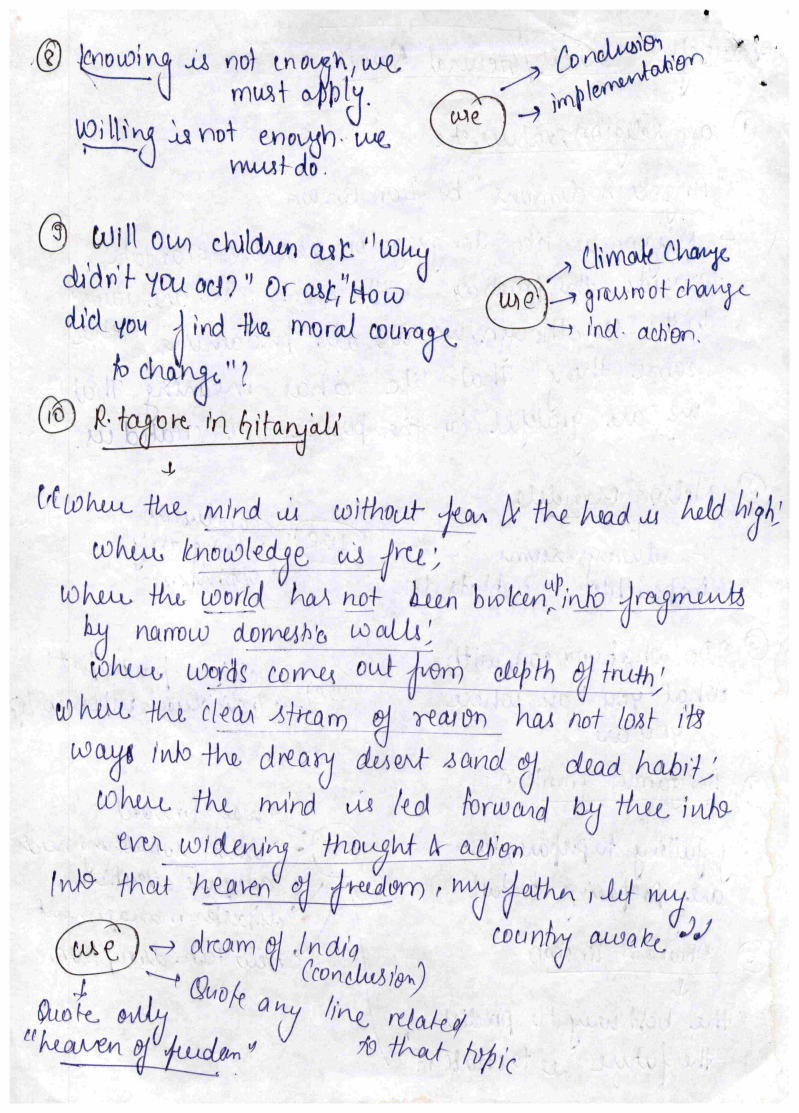 ⑧ Knowing is not enough, we
must apply.
Willing is not enough. we
must do.
use → Conclusion
→ implementation
⑨ Will our children ask "Why
didn't you act?" Or ask, "How
did you find the moral courage
to change"?
use → Climate Change
→ grassroot change
→ ind. action.
⑩ R. tagore in Gitanjali
↓
"where the mind is without fear & the head is held high;
where knowledge is free;
where the world has not been broken up into fragments
by narrow domestic walls;
where words comes out from depth of truth;
where the clear stream of reason has not lost its
ways into the dreary desert sand of dead habit;
where the mind is led forward by thee into
ever widening thought & action
Into that heaven of freedom, my father, let my
country awake"
use → dream of India
(conclusion)
→ Quote any line related
to that topic
↓
Quote only
"heaven of freedom"